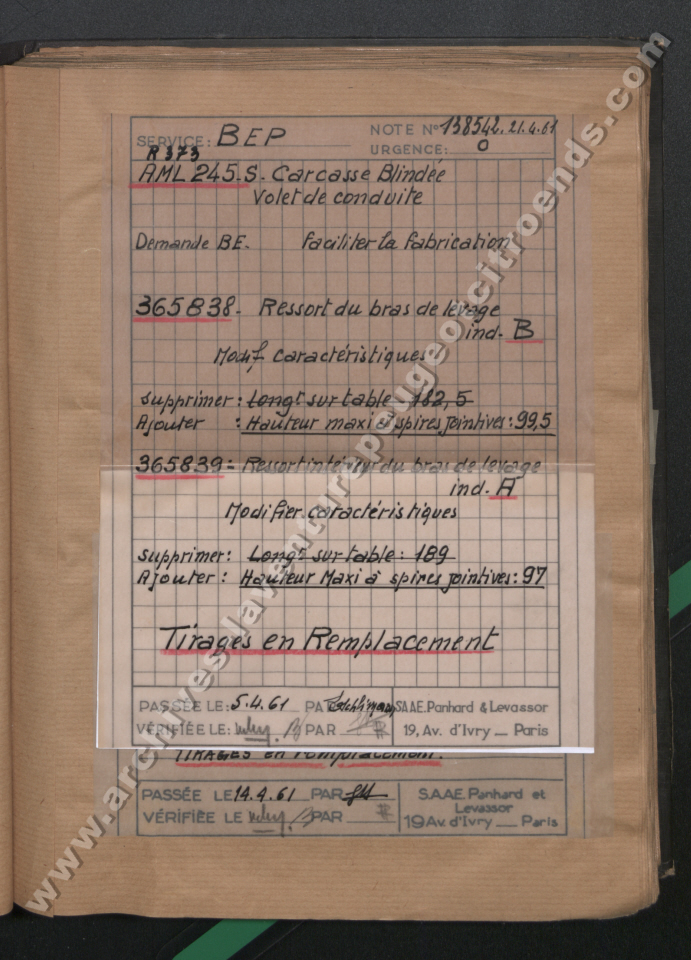 SERVICE: BEP NOTE N° 138542. 21.4.61
URGENCE: O
R 373
AML 245.S. Carcasse Blindée
Volet de conduite
Demande BE. faciliter la fabrication
365838. Ressort du bras de levage
ind. B
Modif caractéristiques
supprimer: Longr sur table: 182,5
Ajouter : Hauteur maxi à spires jointives: 99,5
365839= Ressort intérieur du bras de levage
ind. A
Modifier caractéristiques
supprimer: Longr sur table: 189
Ajouter: Hauteur Maxi à spires jointives: 97
Tirages en Remplacement
PASSÉE LE: 5.4.61 PAR S.A.A.E. Panhard & Levassor
VÉRIFIÉE LE: PAR 19, Av. d'Ivry __ Paris
TIRAGES en remplacement.
PASSÉE LE 14.4.61 PAR S.A.A.E. Panhard et
Levassor
VÉRIFIÉE LE PAR 19 Av. d'Ivry __ Paris
www.archives.laventurepeugeotcitroends.com